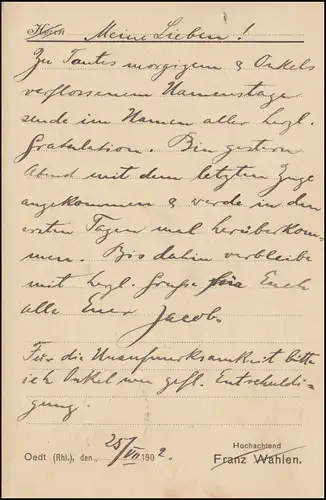 Meine Lieben!
Zu Tantes morgigem & Onkels
verflossenem Namenstage
sende im Namen aller herzl.
Gratulation. Bin gestern
Abend mit dem letzten Zuge
angekommen & werde in den
ersten Tagen mal herüberkom-
men. Bis dahin verbleibe
mit herzl. Gruße für Euch
alle Euer Jacob.
Für die Unaufmerksamkeit bitte
ich Onkel um gefl. Entschuldi-
gung.
Hochachtend
Oedt (Rhl.), den 25/VII 1902. Franz Wahlen.